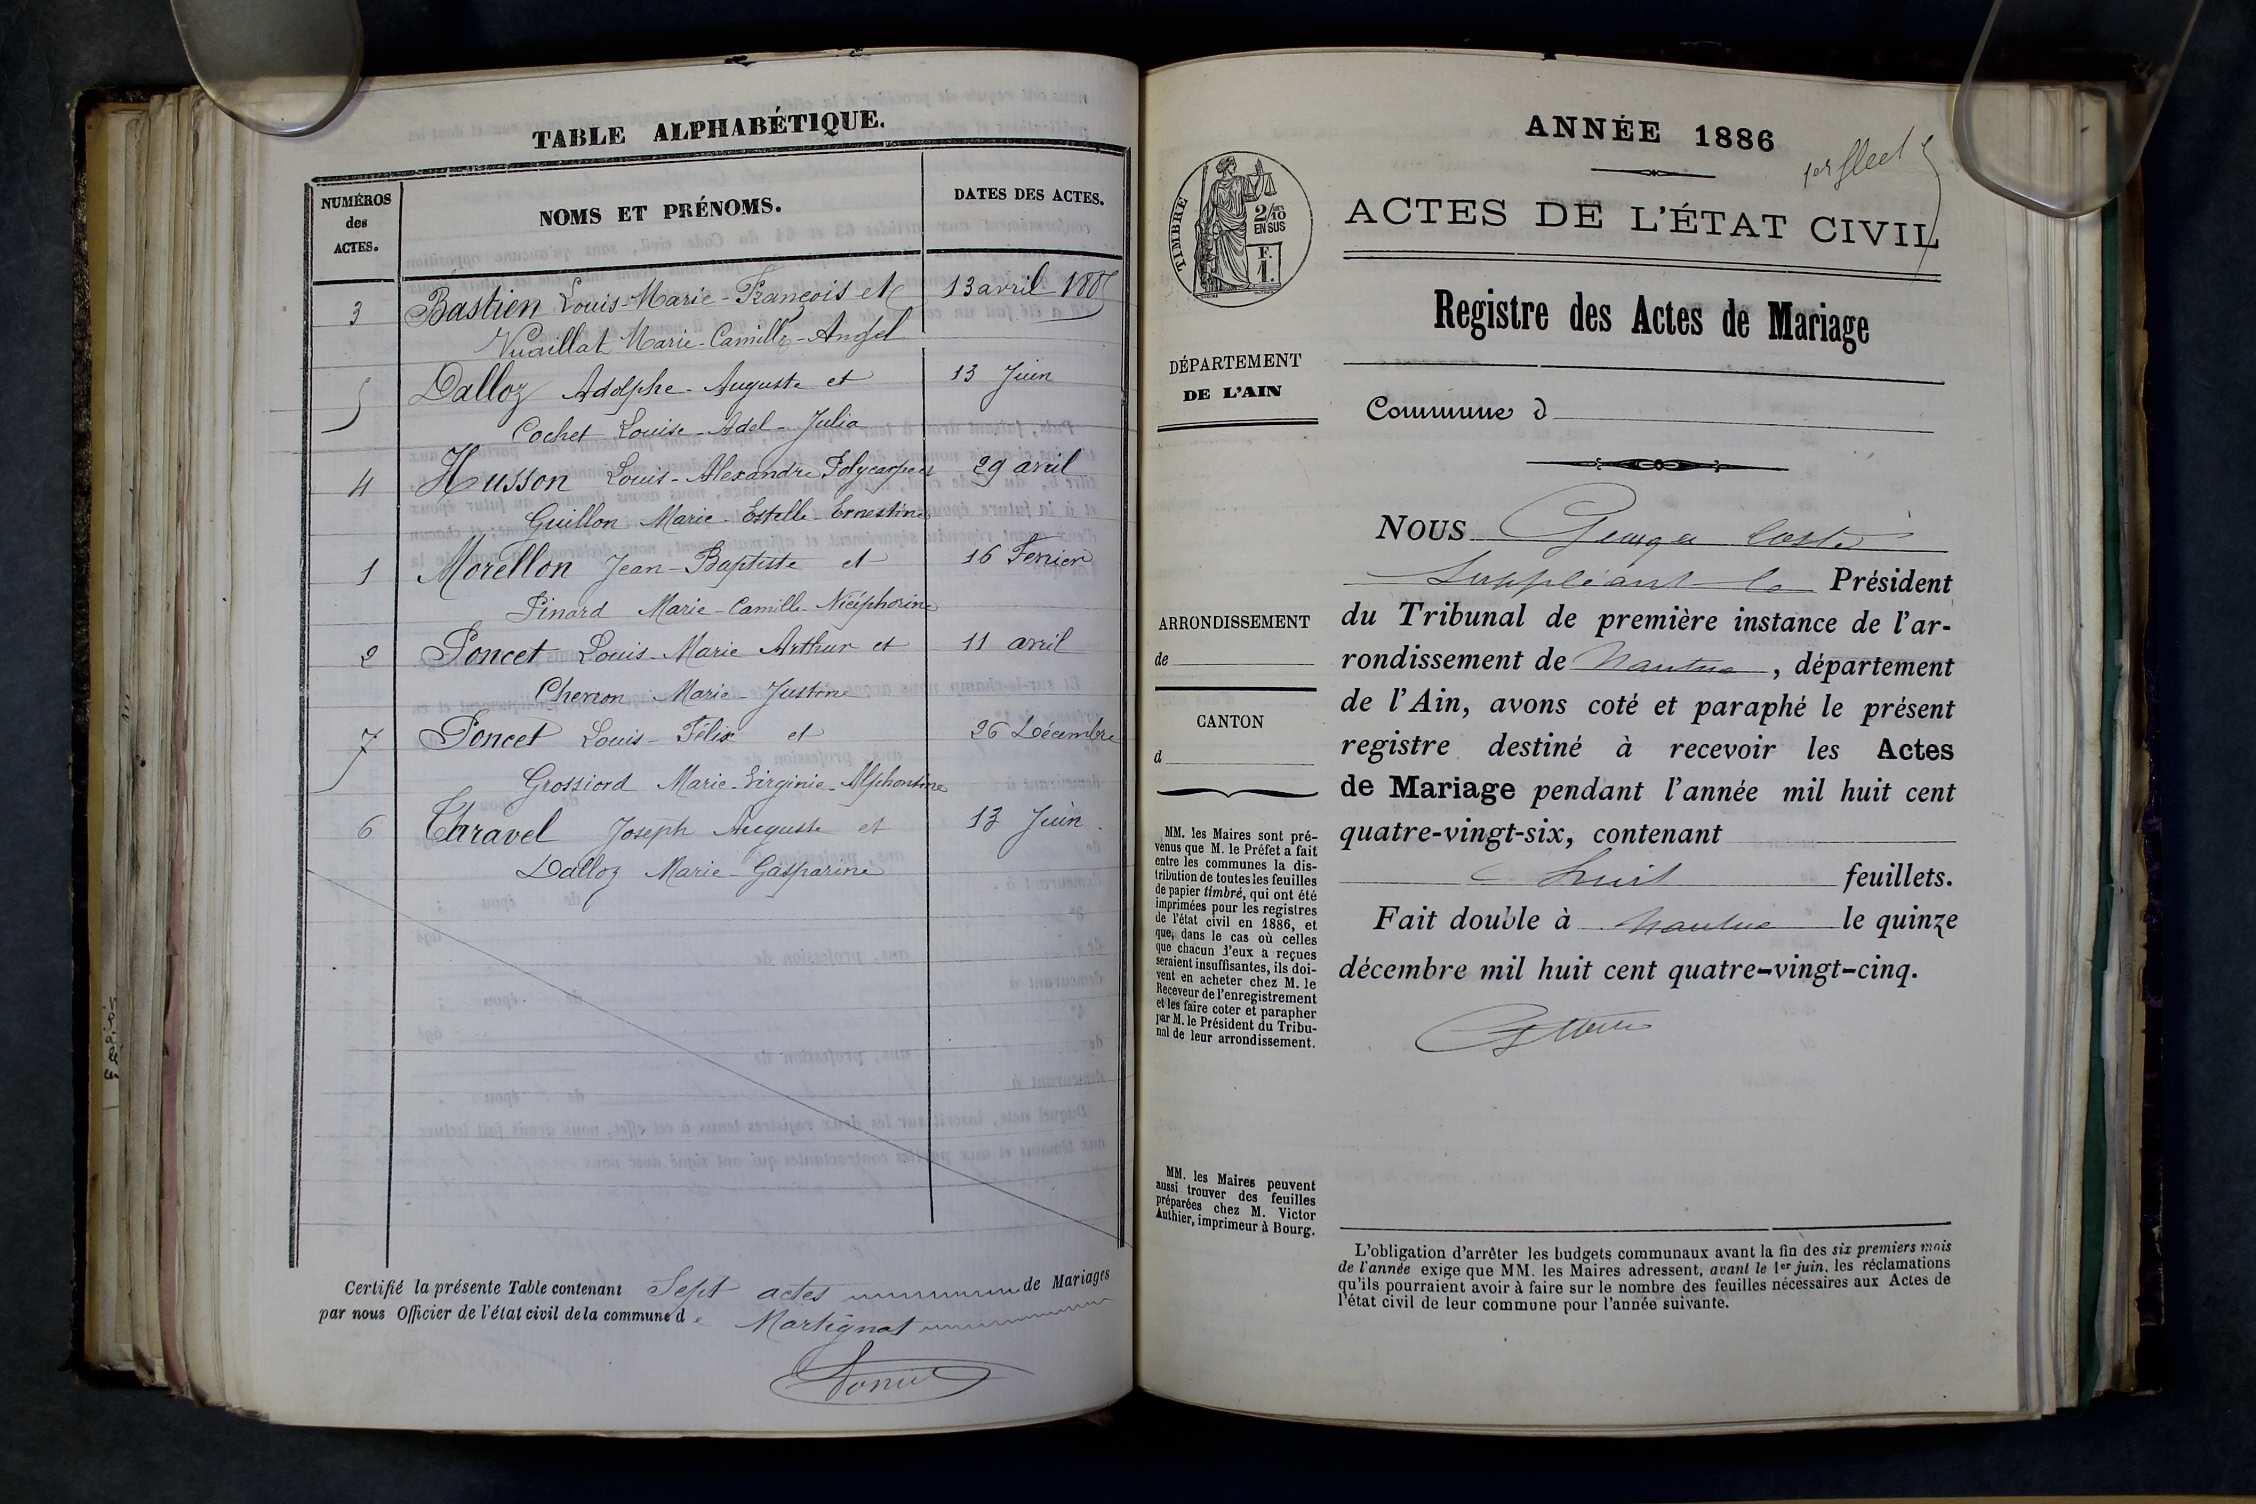 TABLE ALPHABÉTIQUE.
NUMÉROS
des
ACTES.
NOMS ET PRÉNOMS.
DATES DES ACTES.
3 Bastien Louis-Marie-François et 13 avril 1885
Vuaillat Marie-Camille-Angel
5 Dalloz Adolphe-Auguste et 13 Juin
Cochet Louise-Adel-Julia
4 Husson Louis-Alexandre Polycarpe et 29 avril
Guillon Marie-Estelle-Ernestine
1 Morellon Jean-Baptiste et 16 Fevrier
Pinard Marie-Camille-Nicéphorine
2 Poncet Louis-Marie Arthur et 11 avril
Marie-Justine
7 Poncet Louis-Félix et 26 Décembre
Grossiord Marie-Virginie-Alphonsine
6 Thravel Joseph Auguste et 13 Juin
Dalloz Marie-Gasparine
Certifié la présente Table contenant Sept actes de Mariages
par nous Officier de l'état civil de la commune de Martignat
ANNÉE 1886
ACTES DE L'ÉTAT CIVIL
TIMBRE
2/10
EN SUS
F.
1.
Registre des Actes de Mariage
DÉPARTEMENT
DE L'AIN
Commune d
NOUS Georges
Suppléant le Président
du Tribunal de première instance de l'ar-
rondissement de Nantua, département
de l'Ain, avons coté et paraphé le présent
registre destiné à recevoir les Actes
de Mariage pendant l'année mil huit cent
quatre-vingt-six, contenant
huit feuillets.
Fait double à Nantua le quinze
décembre mil huit cent quatre-vingt-cinq.
ARRONDISSEMENT
de
CANTON
d
MM. les Maires sont pré-
venus que M. le Préfet a fait
entre les communes la dis-
tribution de toutes les feuilles
de papier timbré, qui ont été
imprimées pour les registres
de l'état civil en 1886, et
que, dans le cas où celles
que chacun d'eux a reçues
seraient insuffisantes, ils doi-
vent en acheter chez M. le
Receveur de l'enregistrement
et les faire coter et parapher
par M. le Président du Tribu-
nal de leur arrondissement.
MM. les Maires peuvent
aussi trouver des feuilles
préparées chez M. Victor
Authier, imprimeur à Bourg.
L'obligation d'arrêter les budgets communaux avant la fin des six premiers mois
de l'année exige que MM. les Maires adressent, avant le 1er juin, les réclamations
qu'ils pourraient avoir à faire sur le nombre des feuilles nécessaires aux Actes de
l'état civil de leur commune pour l'année suivante.